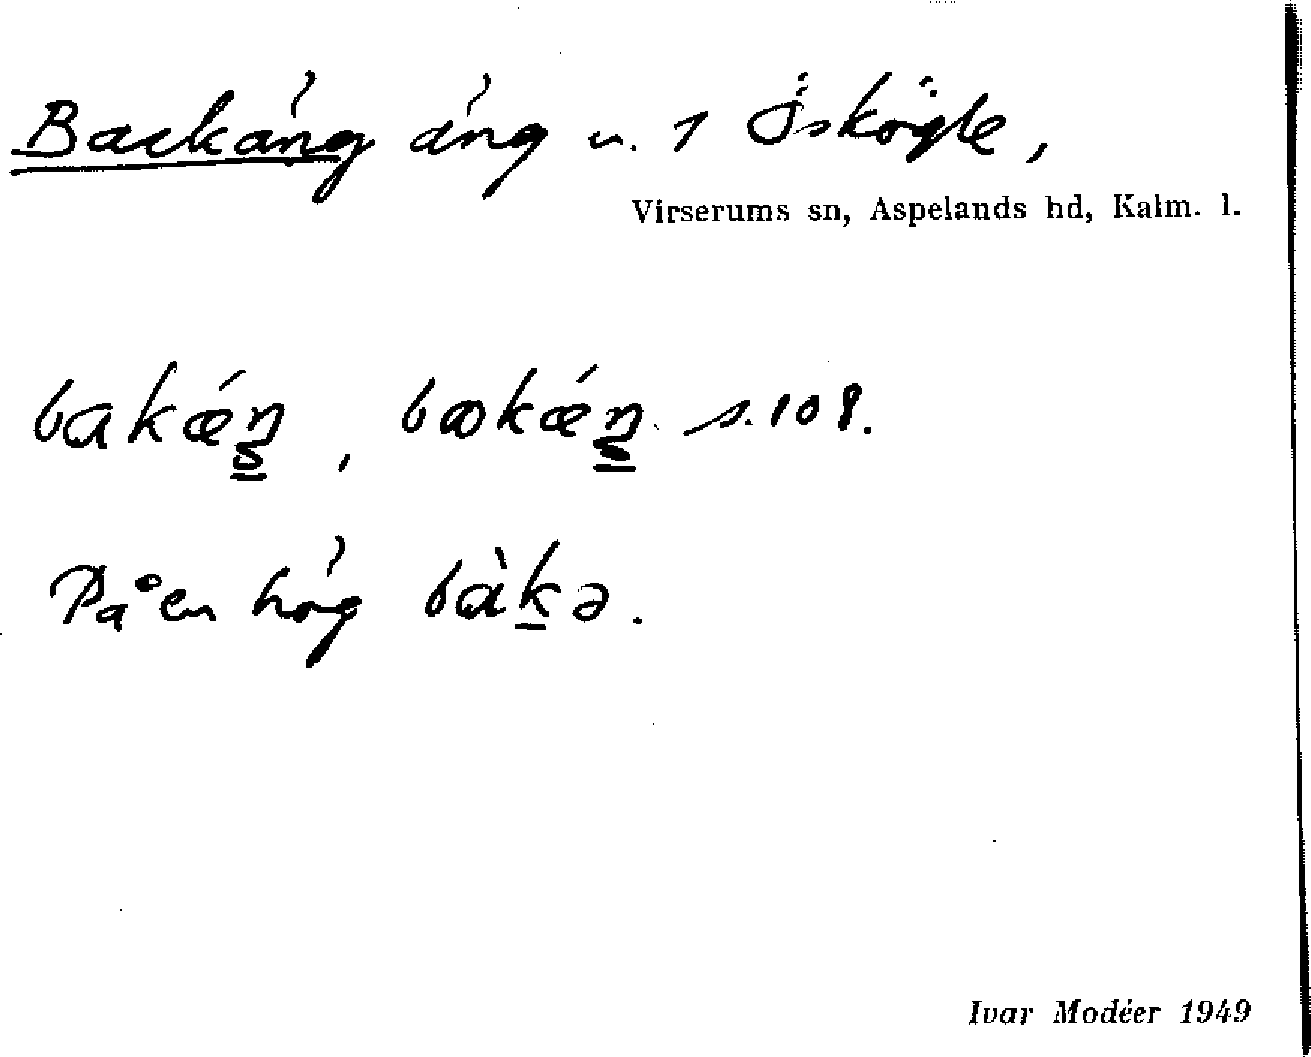 Backäng äng u. 1 Öskögle,
Virserums sn, Aspelands hd, Kalm. l.
bakǽŋ, bɷkǽŋ s. 108.
På en hög bàkə.
Ivar Modéer 1949